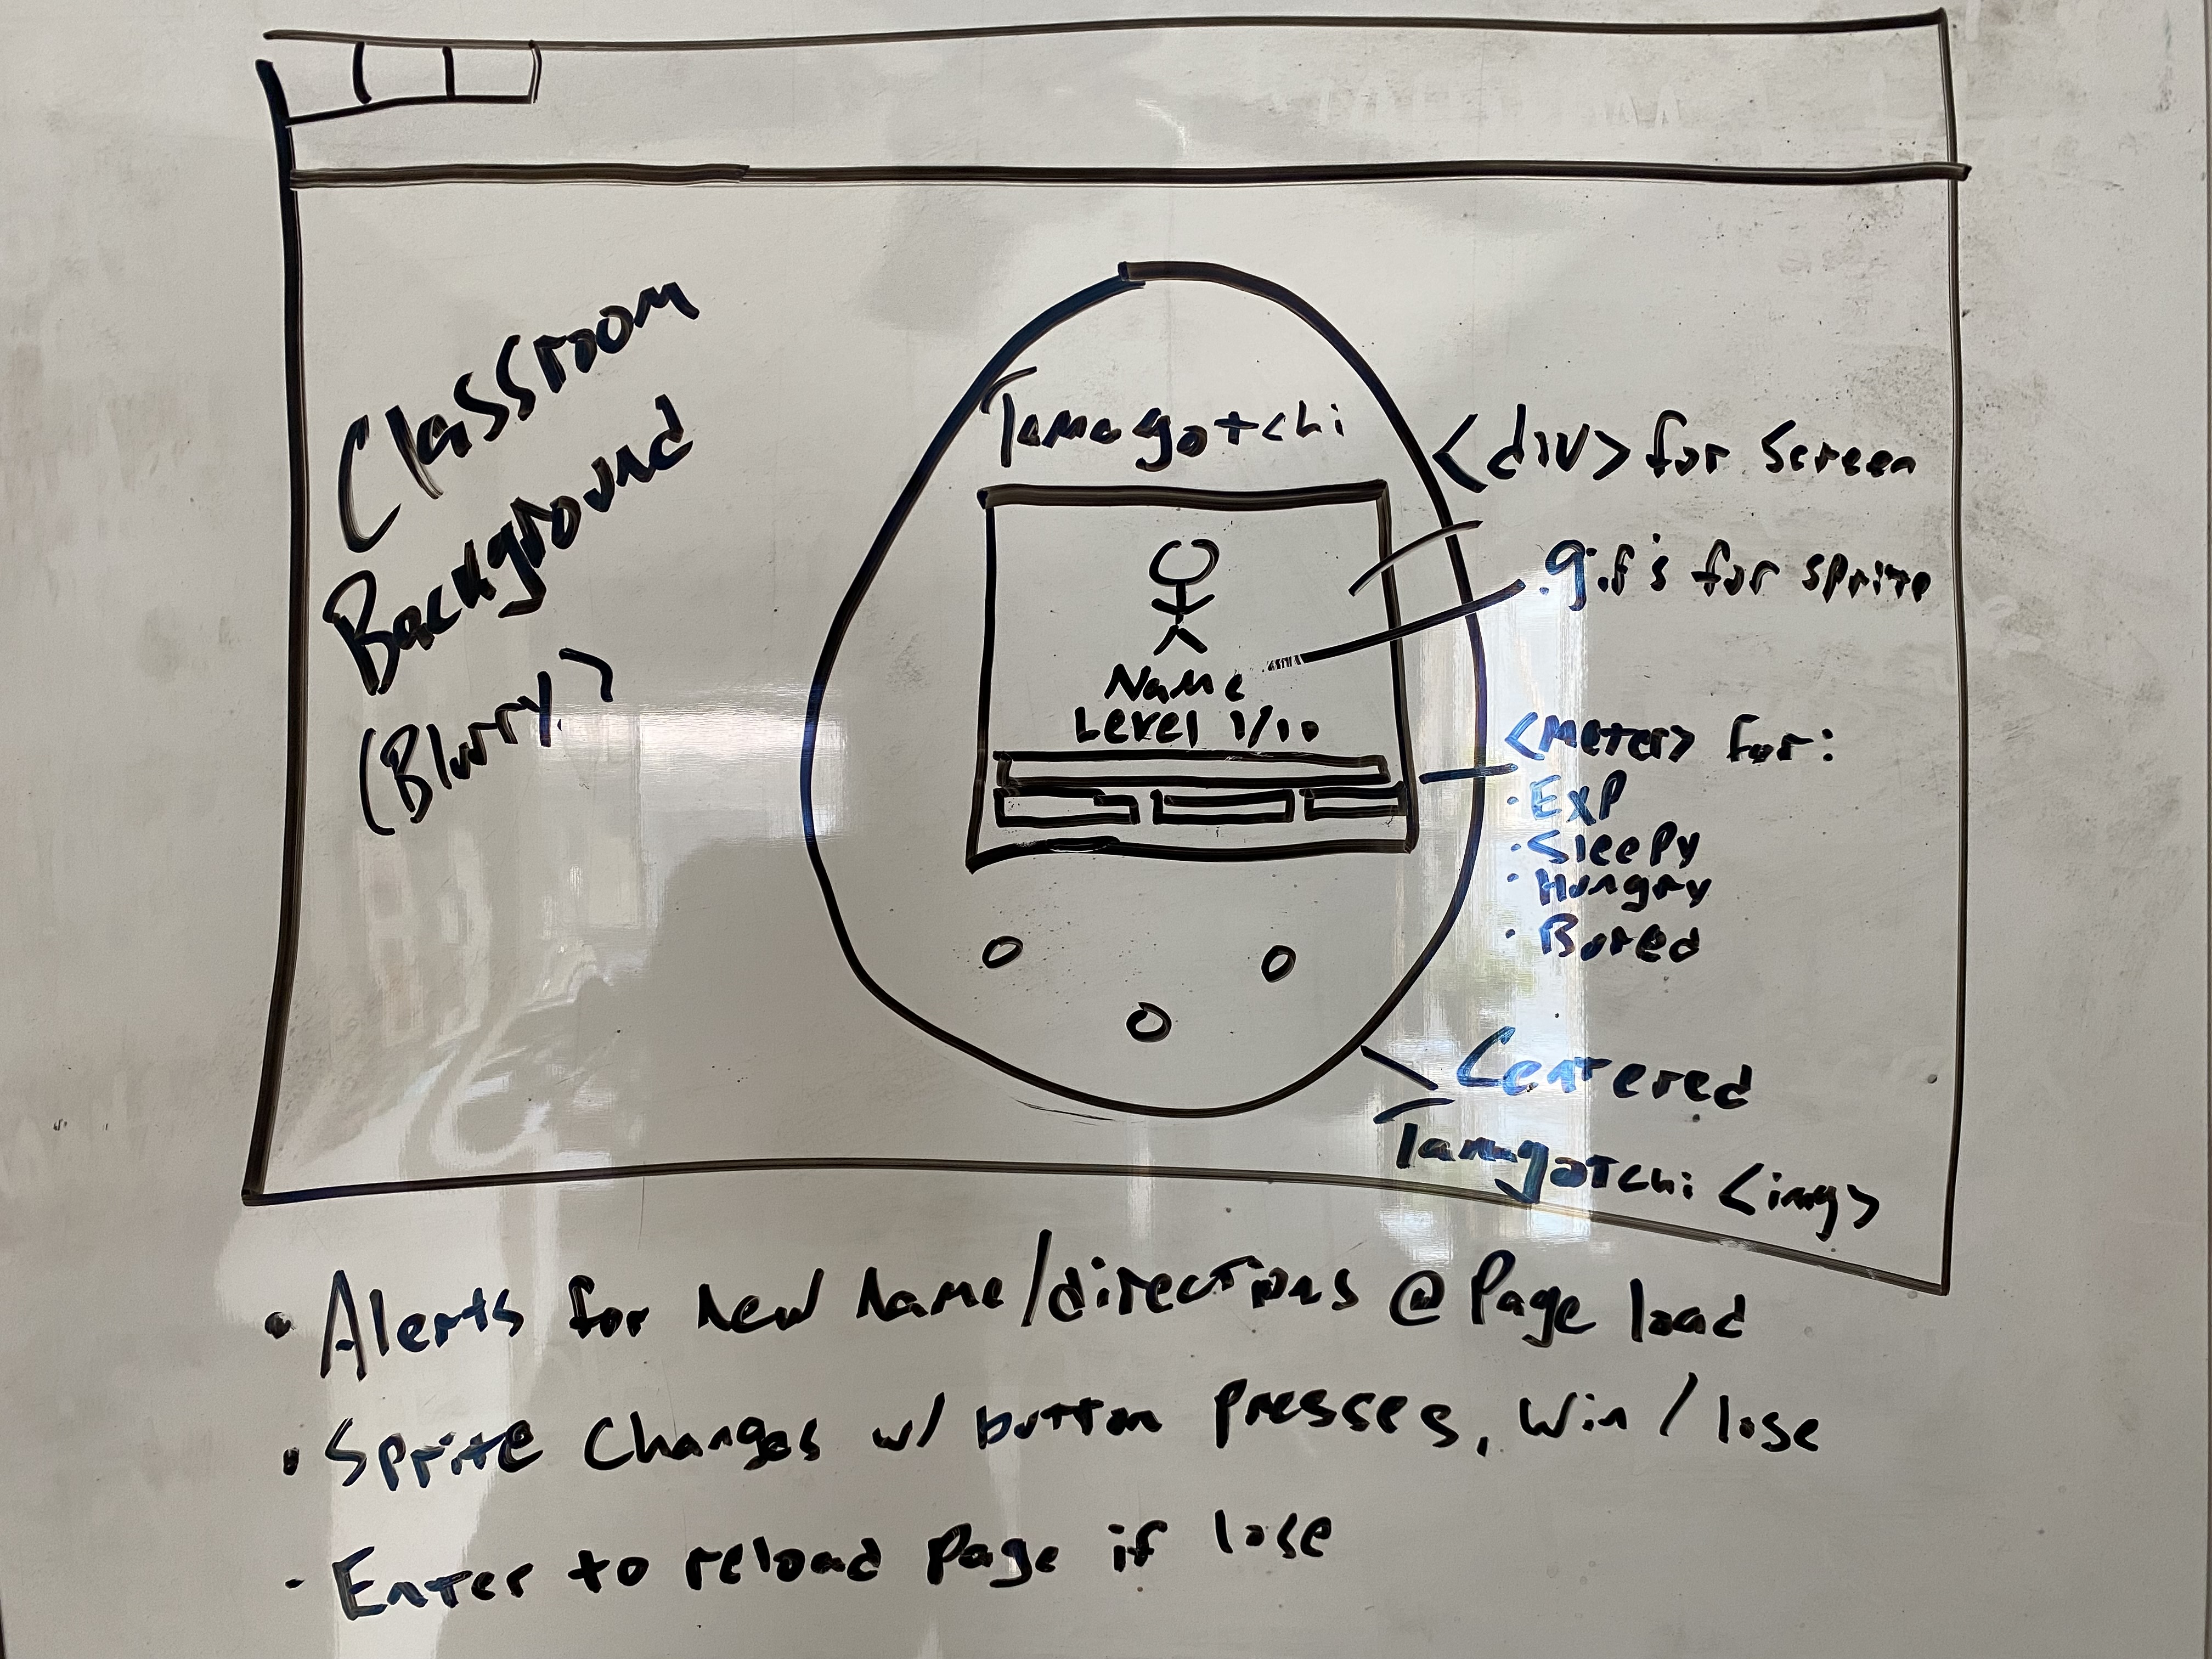 Classroom
Background
(Blurry?)
Tamagotchi
Name
Level 1/10
<div> for Screen
.gif's for sprite
<meter> for:
· EXP
· Sleepy
· Hungry
· Bored
Centered
Tamagotchi <img>
• Alerts for new name/directions @ Page load
• Sprite Changes w/ button presses, win / lose
• Enter to reload page if lose